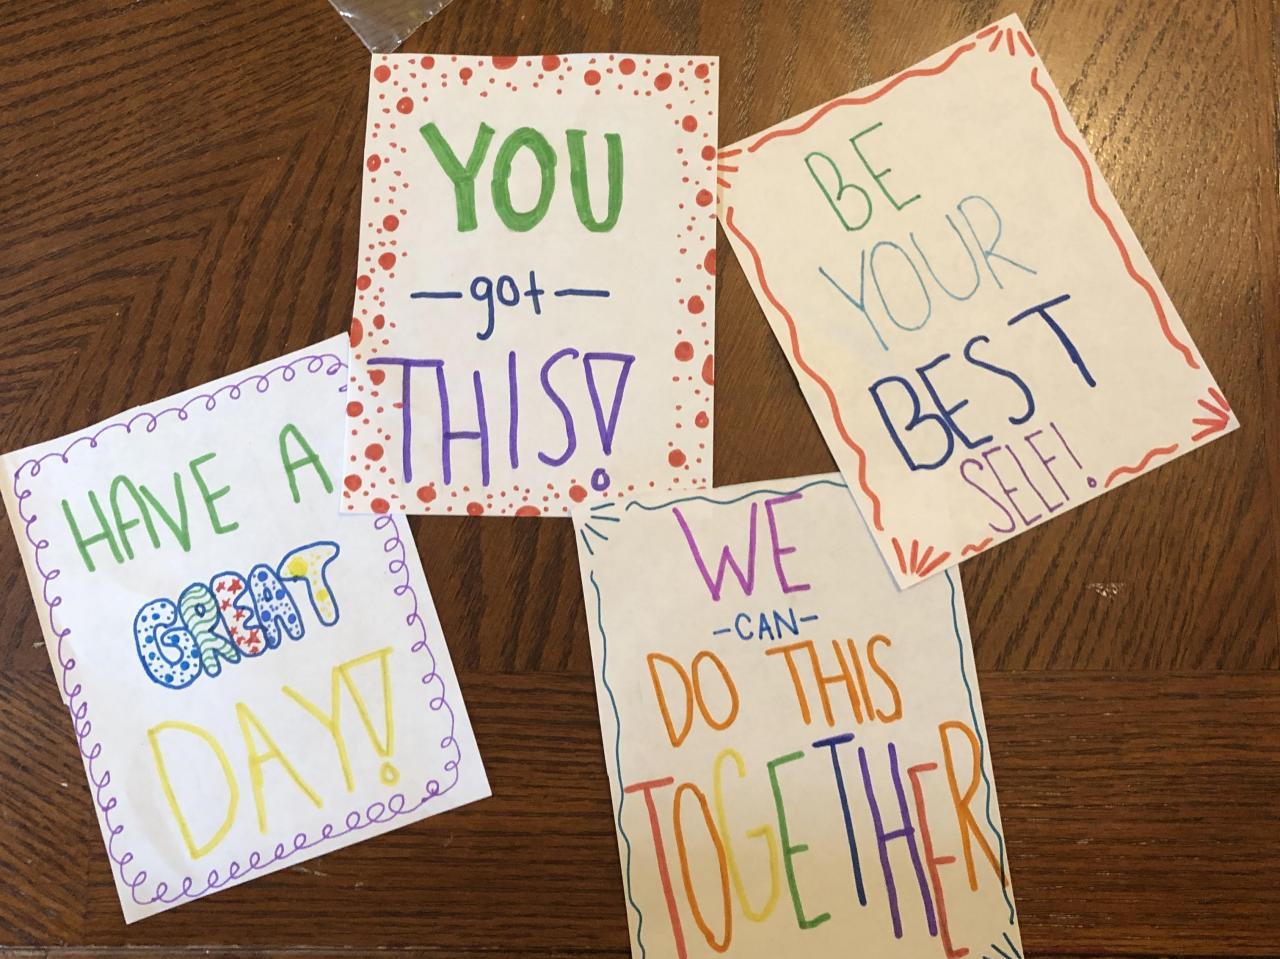 YOU
-got-
THIS!
BE
YOUR
BEST
SELF!
HAVE A
GREAT
DAY!
WE
-CAN-
DO THIS
TOGETHER